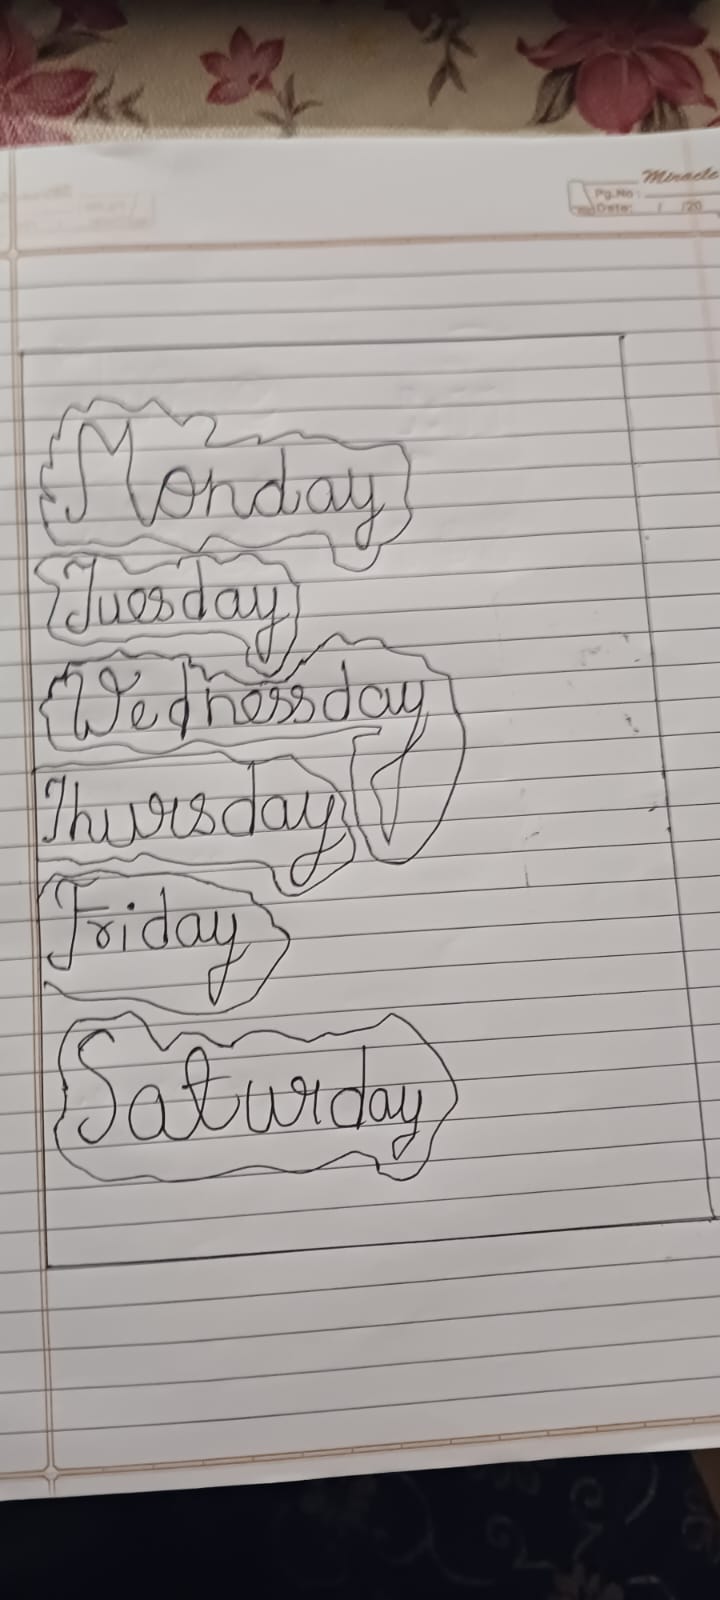 Miracle
Pg.No :
Date: / /20
Monday
Tuesday
Wednessday
Thursday
Friday
Saturday